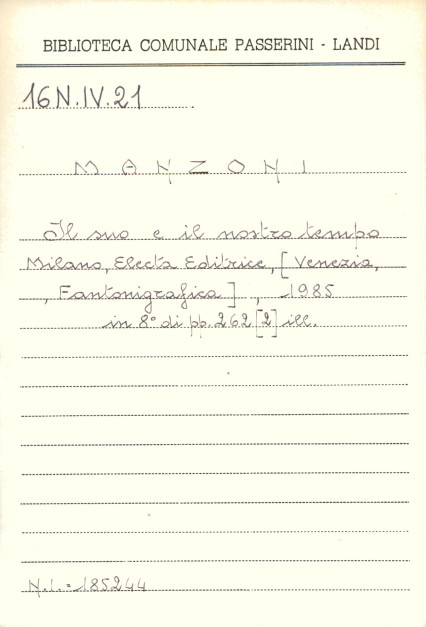 BIBLIOTECA COMUNALE PASSERINI - LANDI
16N.IV.21
MANZONI
Il suo e il nostro tempo
Milano, Electa Editrice, [Venezia,
, Fantonigrafica] , 1985
in 8° di pp. 262 [2] ill.
N.I. = 185244